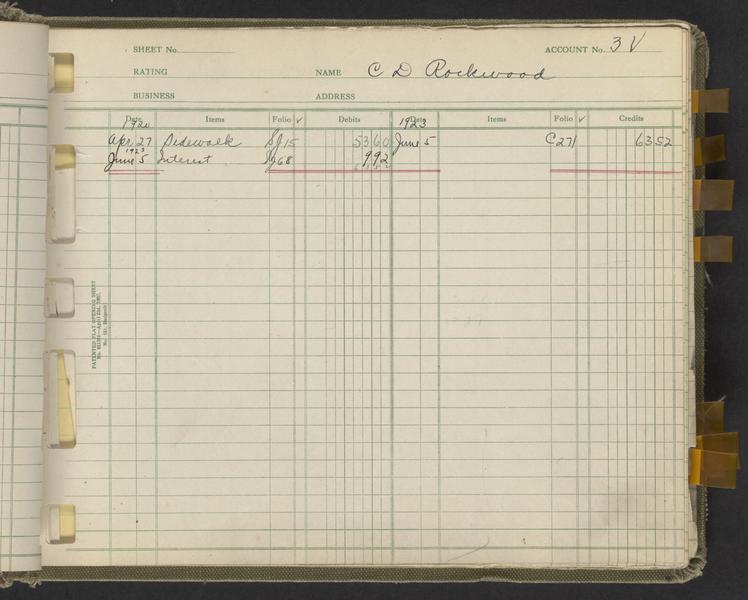 SHEET No. ACCOUNT No. 3 V
RATING NAME C D Rockwood
BUSINESS ADDRESS
Date Items Folio ✓ Debits Date Items Folio ✓ Credits
1920 1923
Apr 27 Sidewalk SJ 15 53 60 June 5 C271 63 52
1923
June 5 Interest J68 9 92
PATENTED FLAT OPENING SHEET